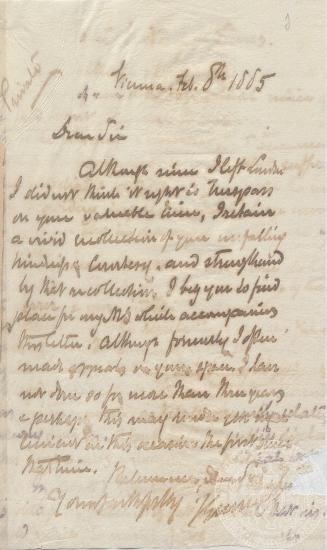 Private
Vienna. Feb. 8th 1865
Dear Sir
Although since I left London
I did not think it right to trespass
on your valuable time, I retain
a vivid recollection of your unfailing
kindness & Courtesy, and strengthened
by that recollection, I beg you to find
place for my MS which accompanies
this letter. Although formerly I often
made appeals on your space, I have
not done so for more than three years
& perhaps this may render you
lenient on this occasion the first since
that time.
Believe me, Dear Sir
Yours